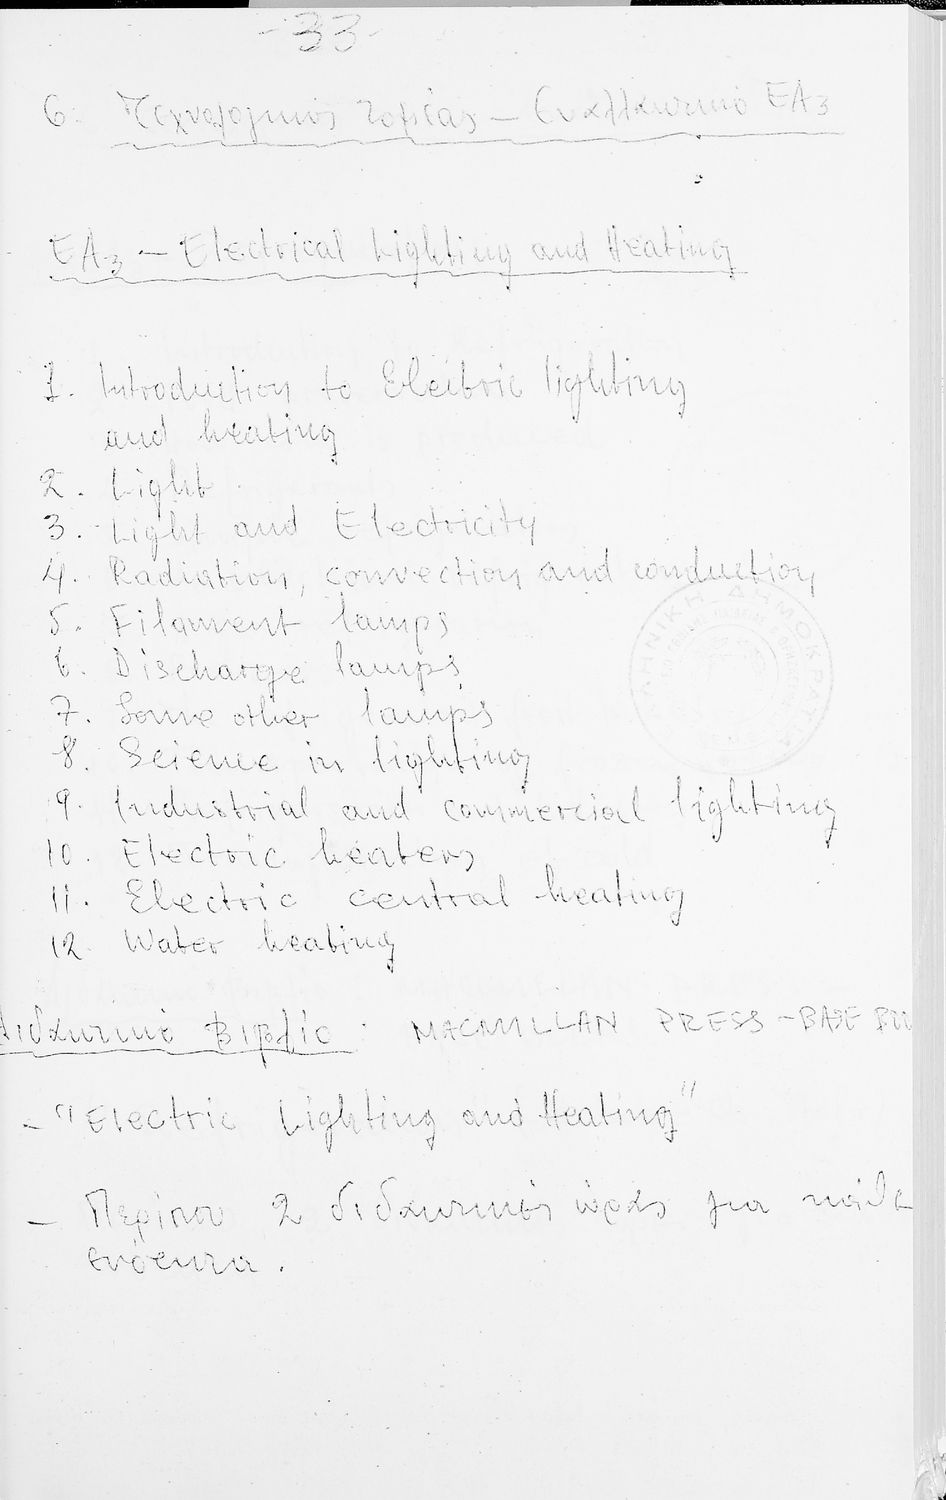 -33-
6. Τεχνολογικός Τομέας - Εναλλακτικό ΕΑ3
ΕΑ3 - Electrical Lighting and Heating
1. Introduction to Electric lighting
and heating
2. Light
3. Light and Electricity
4. Radiation, convection and conduction
5. Filament lamps
6. Discharge lamps
7. Some other lamps
8. Science in lighting
9. Industrial and commercial lighting
10. Electric heaters
11. Electric central heating
12. Water heating
ΕΛΛΗΝΙΚΗ ΔΗΜΟΚΡΑΤΙΑ
Διδακτικό Βιβλίο: MACMILLAN PRESS - BASE
- "Electric Lighting and Heating"
- Περίπου 2 διδακτικές ώρες για κάθε
ενότητα.